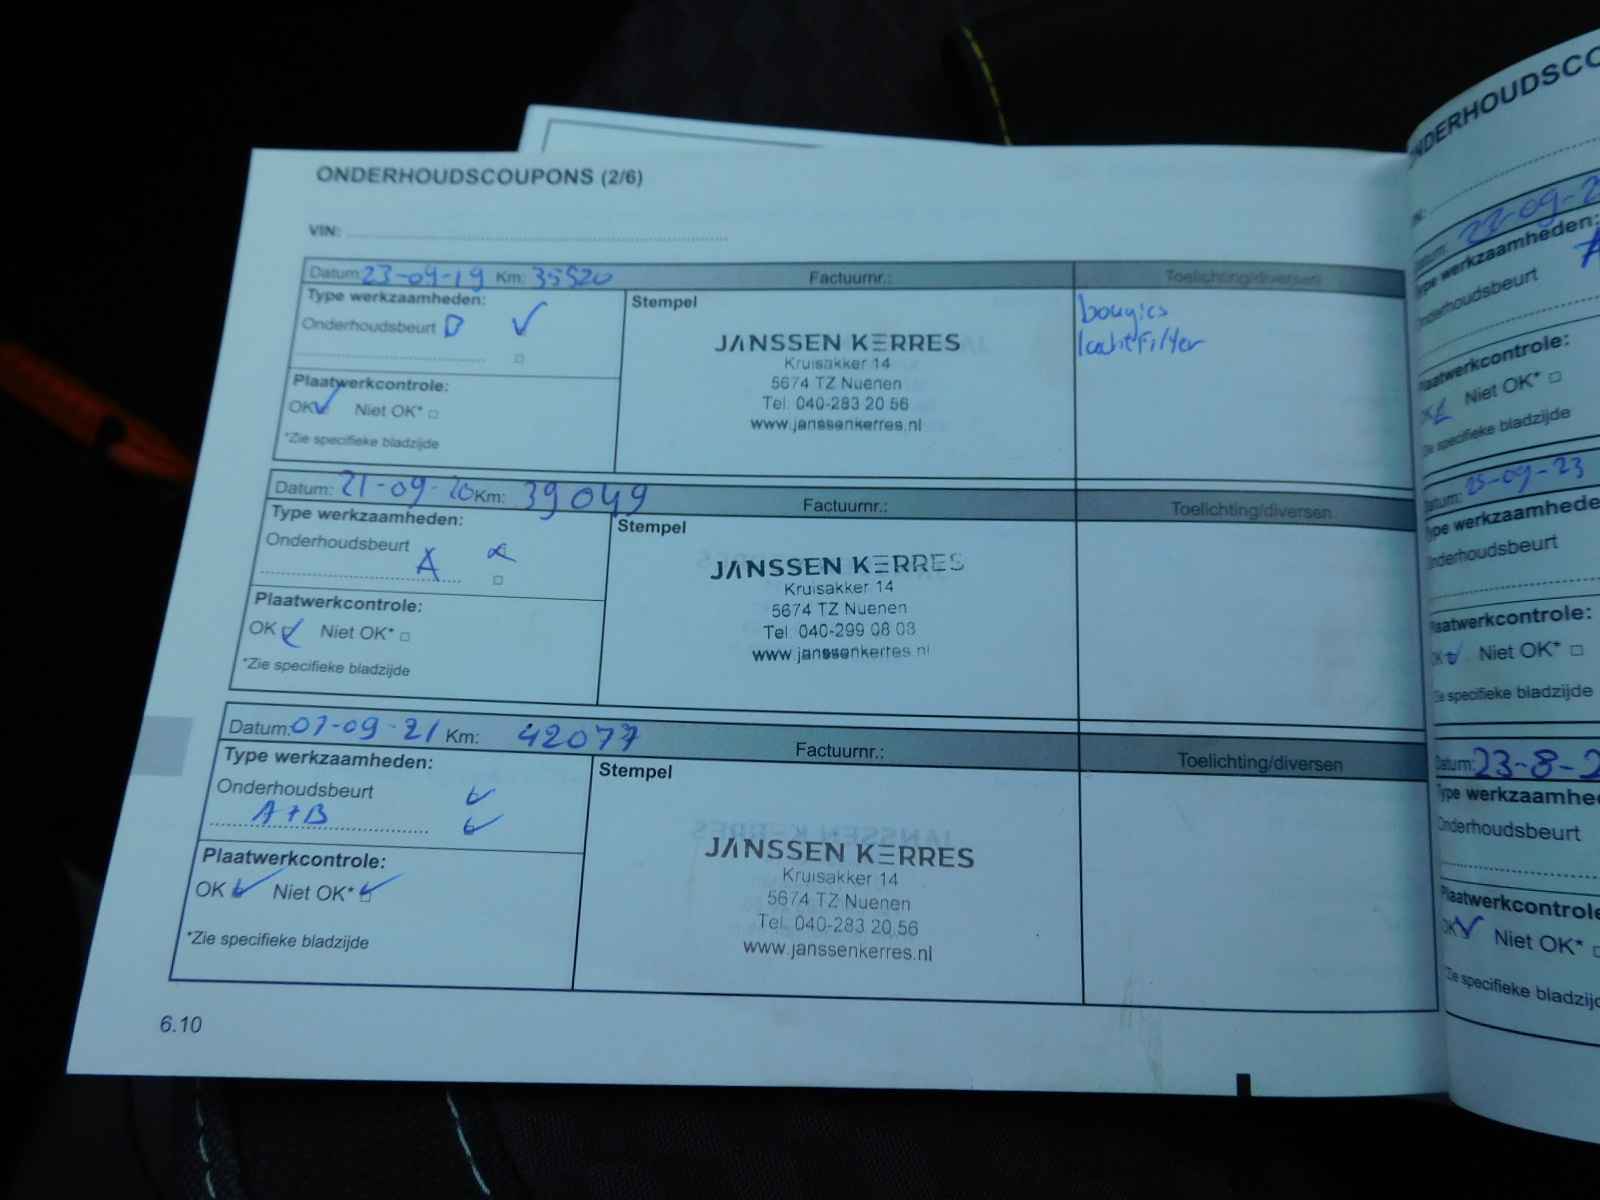 ONDERHOUDSCOUPONS (2/6)
VIN:
Datum: 23-09-19 Km: 35520 Factuurnr.: Toelichting/diversen
Type werkzaamheden:
Stempel
Onderhoudsbeurt
bougies
luchtfilter
JANSSEN KERRES
Kruisakker 14
5674 TZ Nuenen
Tel. 040-283 20 56
www.janssenkerres.nl
Plaatwerkcontrole:
OK Niet OK*
*Zie specifieke bladzijde
Datum: 21-09-20 Km: 39049 Factuurnr.: Toelichting/diversen
Type werkzaamheden:
Stempel
Onderhoudsbeurt
A
JANSSEN KERRES
Kruisakker 14
5674 TZ Nuenen
Tel. 040-299 08 08
www.janssenkerres.nl
Plaatwerkcontrole:
OK Niet OK*
*Zie specifieke bladzijde
Datum: 07-09-21 Km: 42077 Factuurnr.: Toelichting/diversen
Type werkzaamheden:
Stempel
Onderhoudsbeurt
A+B
JANSSEN KERRES
Kruisakker 14
5674 TZ Nuenen
Tel. 040-283 20 56
www.janssenkerres.nl
Plaatwerkcontrole:
OK Niet OK*
*Zie specifieke bladzijde
6.10
Datum:
werkzaamheden:
Onderhoudsbeurt
A
Plaatwerkcontrole:
Niet OK*
specifieke bladzijde
Datum: 25-09-23
Onderhoudsbeurt
Plaatwerkcontrole:
OK Niet OK*
specifieke bladzijde
Datum: 23-8-2
Onderhoudsbeurt
OK Niet OK*